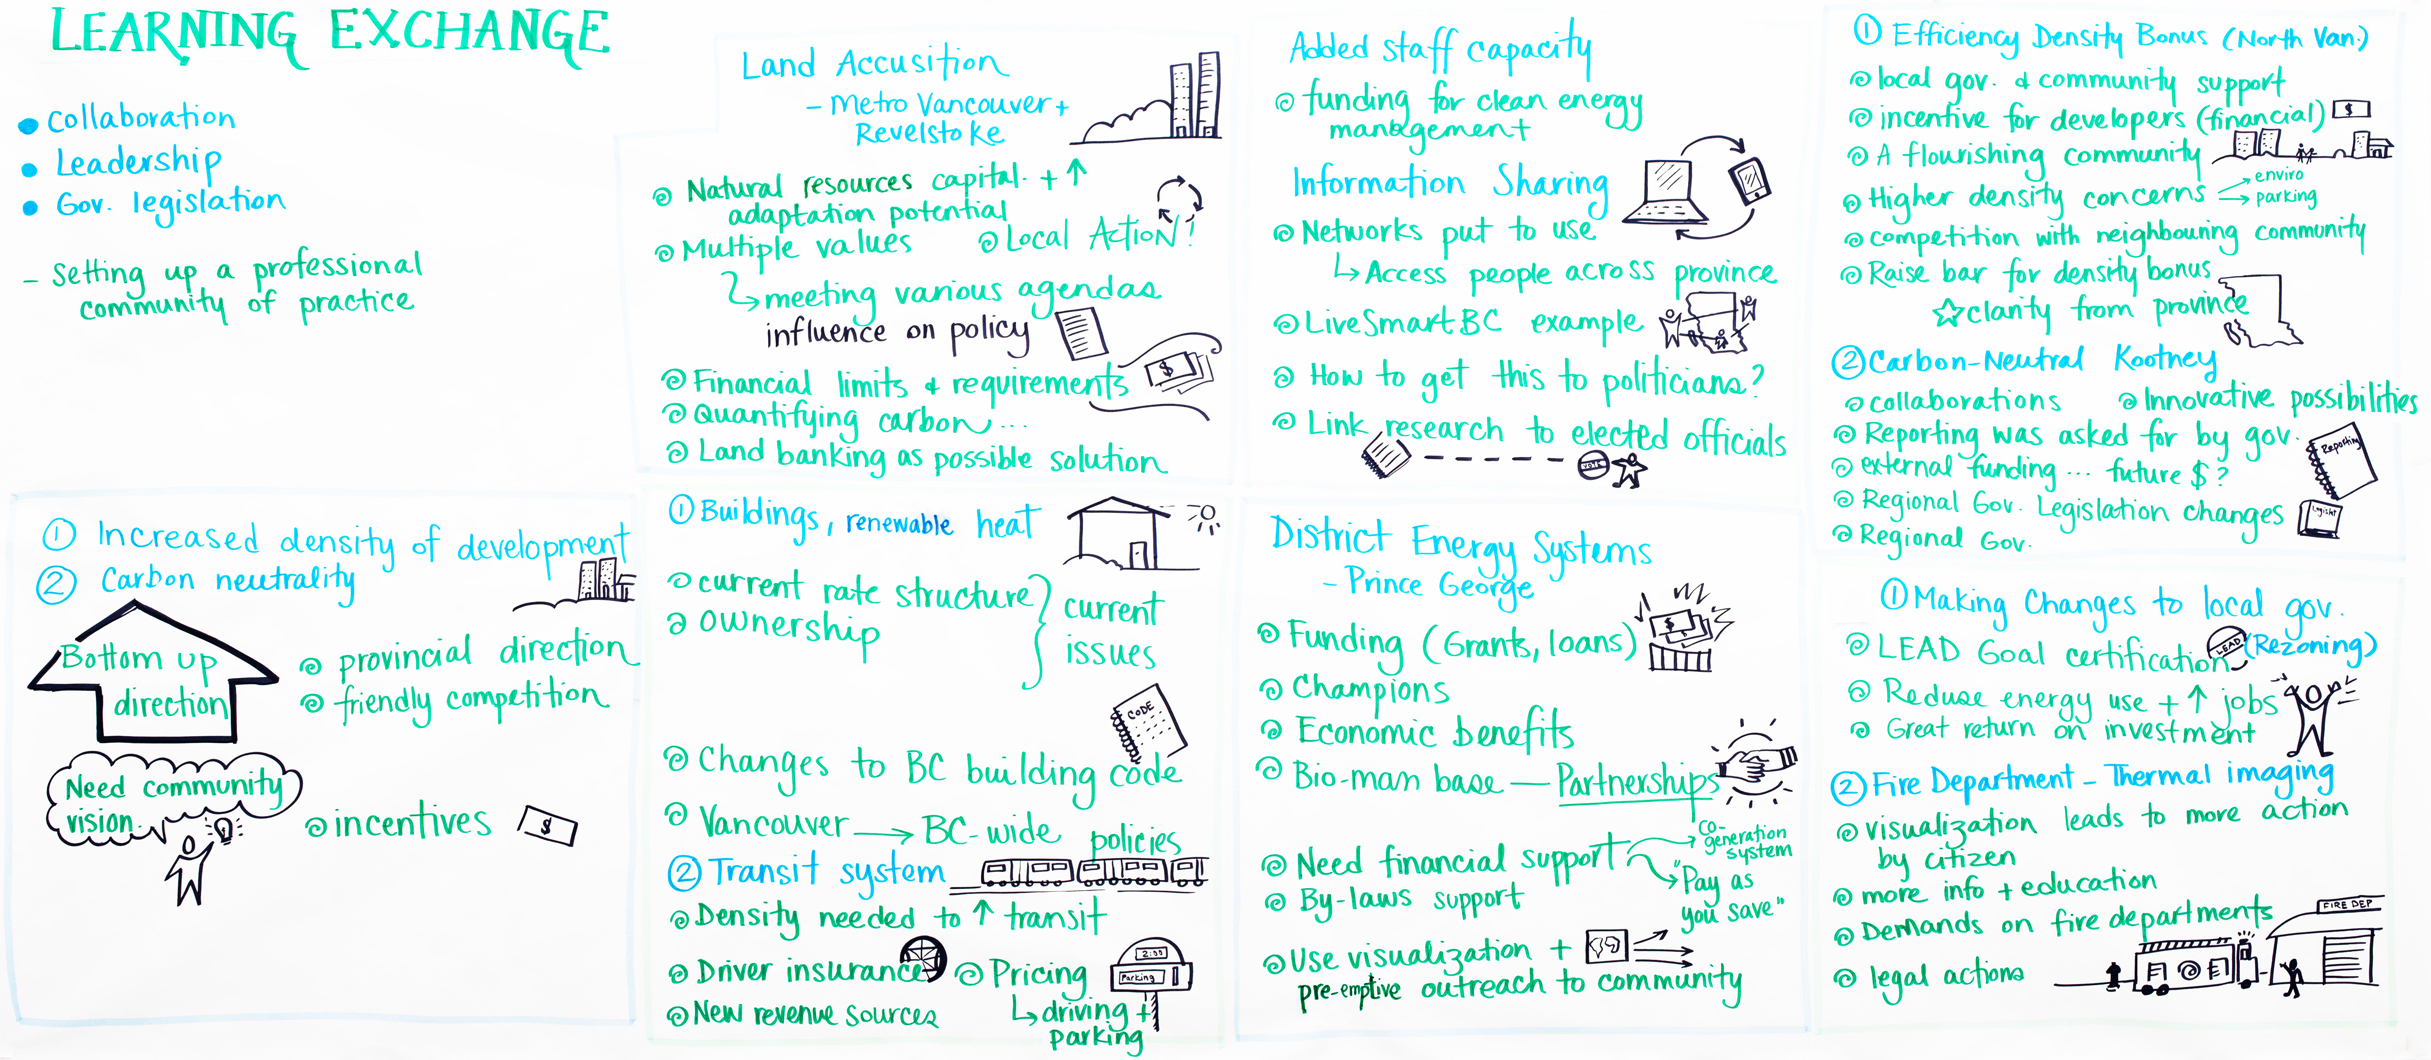 LEARNING EXCHANGE
collaboration
Leadership
Gov. legislation
- Setting up a professional
community of practice
Land Accusition
- Metro Vancouver +
Revelstoke
Natural resources capital. + ↑
adaptation potential
Multiple values
Local Action!
↳ meeting various agendas
influence on policy
$
Financial limits & requirements
Quantifying carbon...
Land banking as possible solution
Added staff capacity
funding for clean energy
management
Information Sharing
Networks put to use
↳ Access people across province
LiveSmartBC example
How to get this to politicians?
Link research to elected officials
VOTE
① Efficiency Density Bonus (North Van.)
local gov. & community support
incentive for developers (financial)
$
A flourishing community
Higher density concerns → enviro
→ parking
competition with neighbouring community
Raise bar for density bonus
☆ clarity from province
② Carbon-Neutral Kootney
collaborations
Innovative possibilities
Reporting was asked for by gov.
Reporting
external funding ... future $?
Regional Gov. Legislation changes
Regional Gov.
① Increased density of development
② Carbon neutrality
Bottom up
direction
provincial direction
friendly competition
Need community
vision
incentives
$
① Buildings, renewable heat
current rate structure
ownership
current
issues
CODE
Changes to BC building code
Vancouver → BC-wide policies
② Transit system
Density needed to ↑ transit
Driver insurance
Pricing
↳ driving +
parking
2:00
Parking
New revenue sources
District Energy Systems
- Prince George
Funding (Grants, loans)
$
Champions
Economic benefits
Bio-man base — Partnerships
Need financial support
→ co-
generation
system
→ "Pay as
you save"
By-laws support
Use visualization +
pre-emptive outreach to community
① Making Changes to local gov.
LEAD Goal certification (Rezoning)
LEAD
Reduse energy use + ↑ jobs
Great return on investment
② Fire Department - Thermal imaging
visualization leads to more action
by citizen
more info + education
Demands on fire departments
FIRE DEP
legal actions